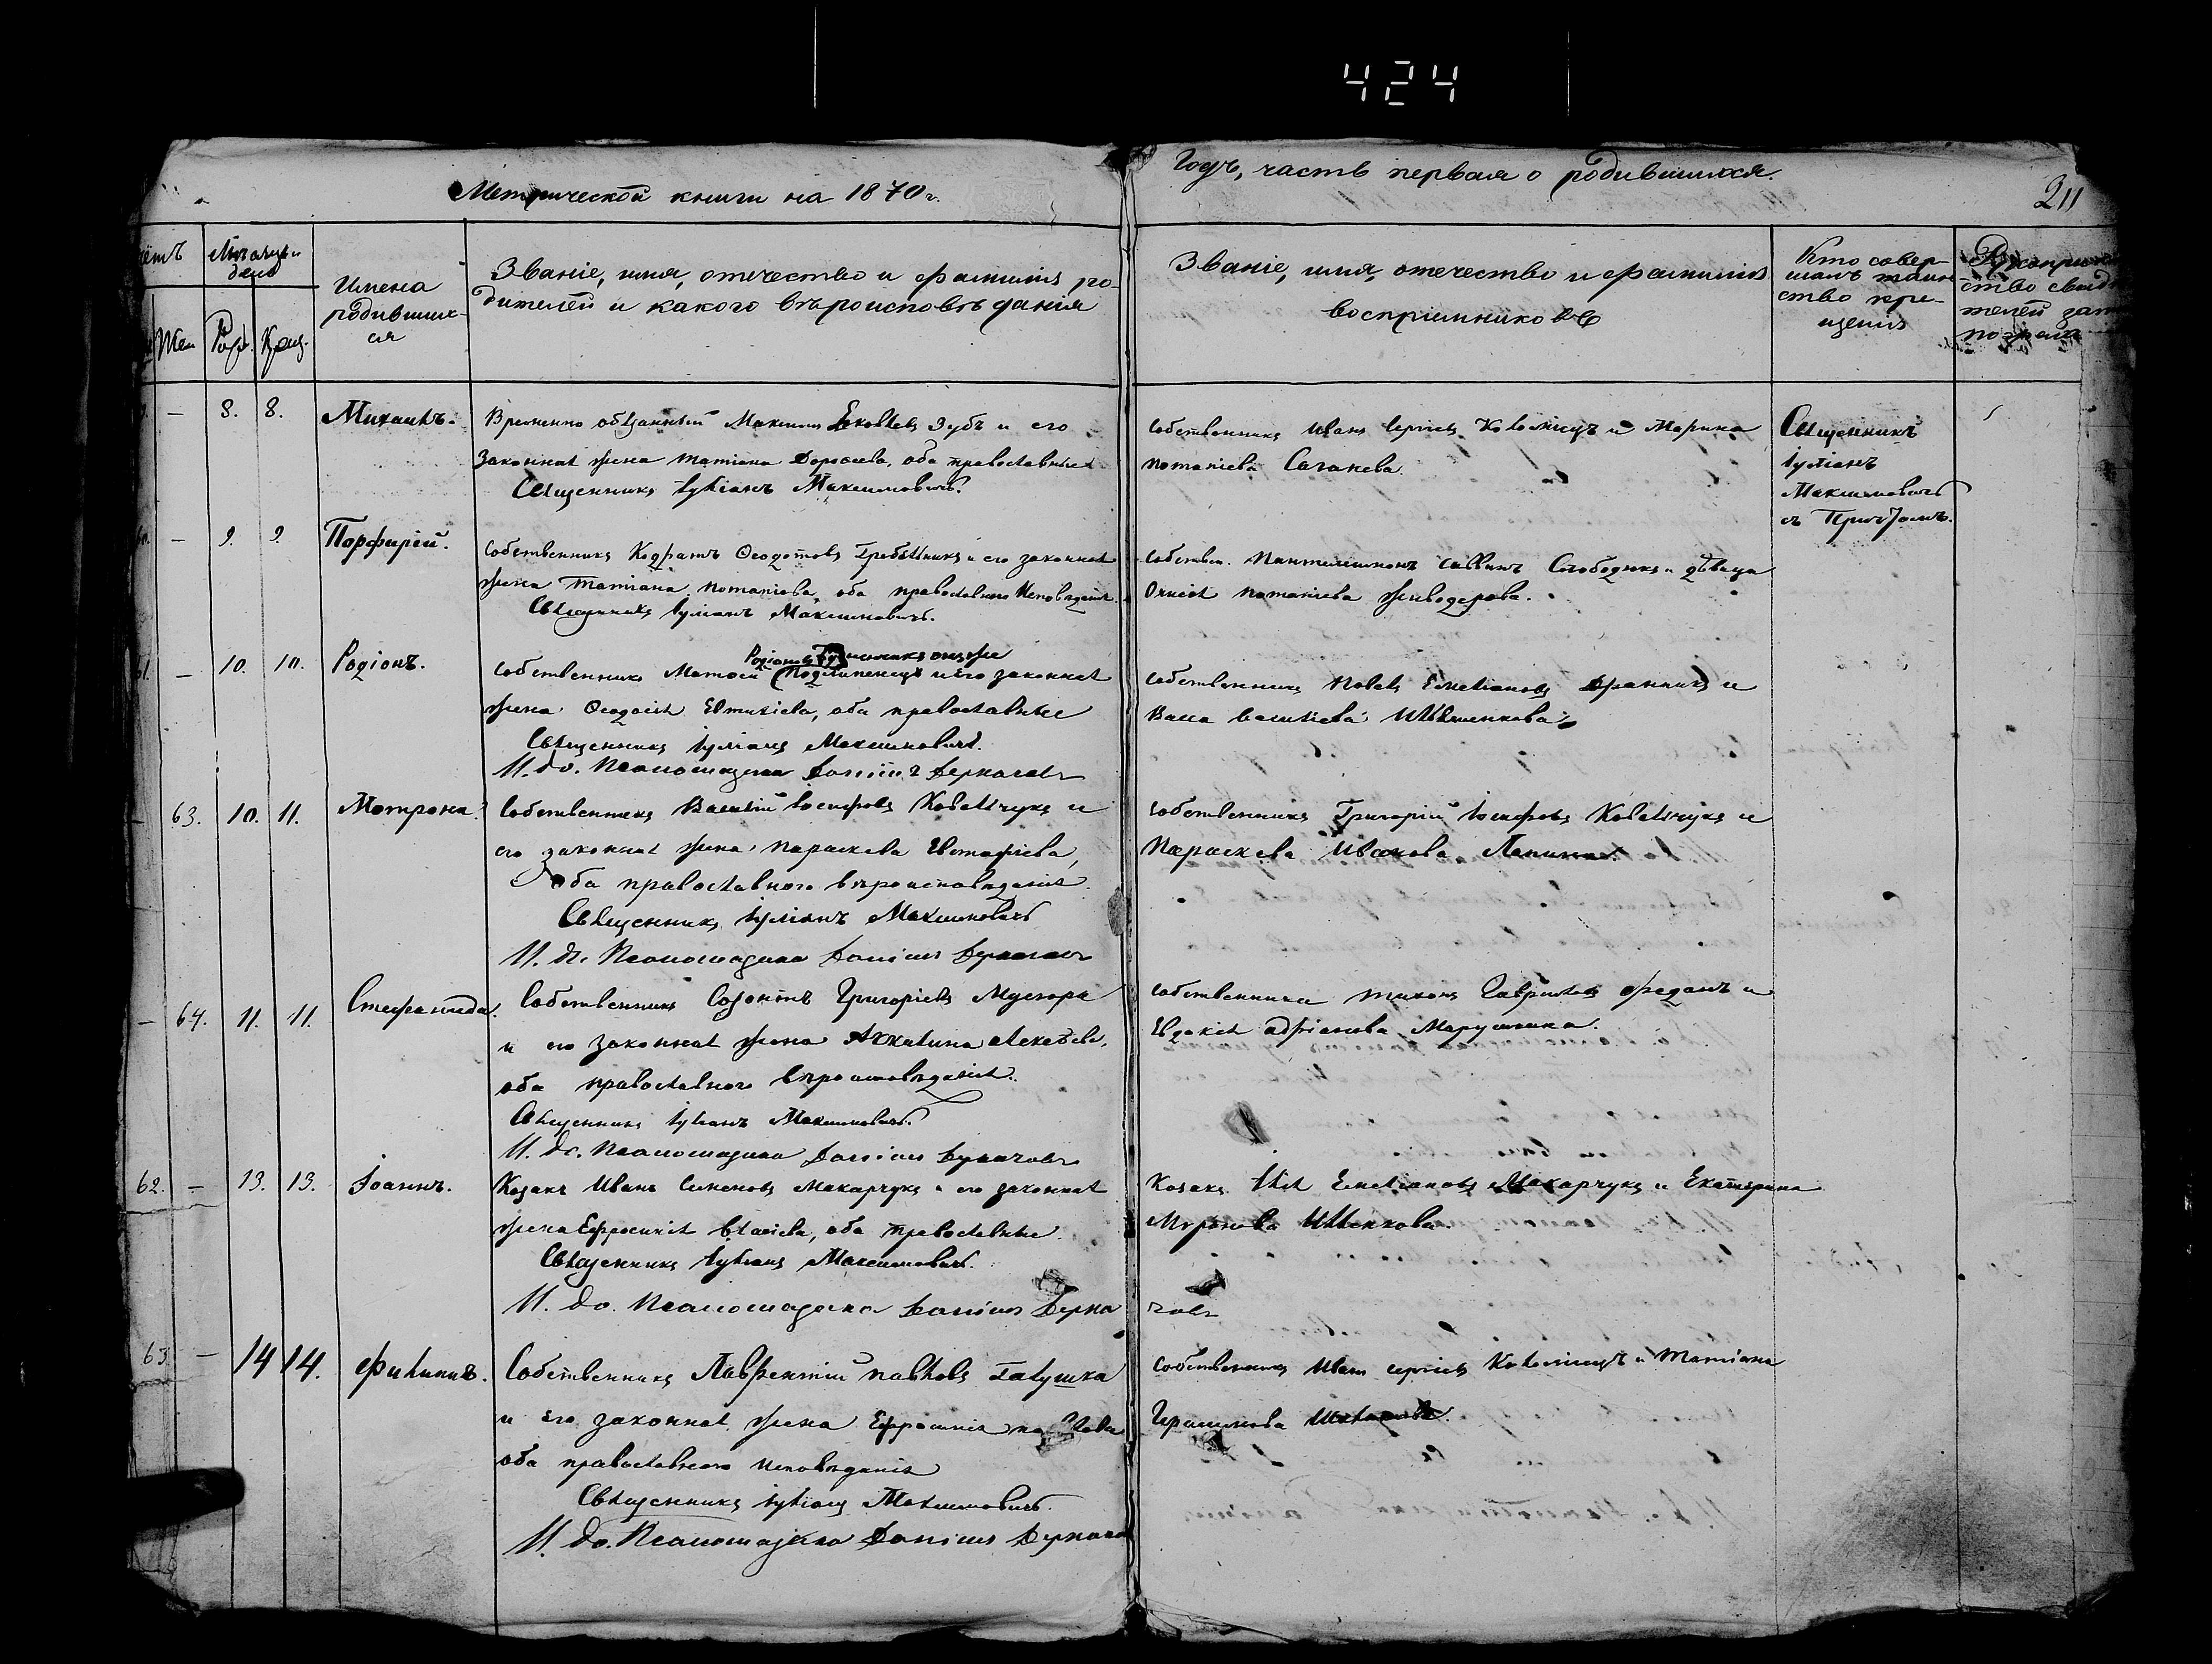 424
Метрической книги на 1870 г.
Годъ, часть первая о родившихся.
211
Счётъ
Мѣсяцъ и день
Жен
Рожд.
Крещ.
Имена
родивших-
ся
Званіе, имя, отечество и фамилія ро-
дителей и какого вѣроисповѣданія
Званіе, имя, отечество и фамилія
воспріимниковъ
Кто совер-
шалъ таин
ство кре-
щенія
ство свидѣ
телей
8. 8.
Михаилъ.
Временно обязанный Максимъ Яковлевъ Зубъ и его
законная жена Татіана Дорофеева, оба православные
Священникъ Іуліанъ Максимовичъ.
Собственникъ Иванъ Сергіевъ Коломіецъ и Марина
Потапіева
Священникъ
Іуліанъ
Максимовичъ
съ Причтомъ.
9. 9.
Порфирій.
Собственникъ Кодратъ Феодотовъ и его законная
жена Татіана Потапіева, оба православнаго исповѣданія.
Священникъ Іуліанъ Максимовичъ.
Собствен. Пантелеимонъ Саввинъ Слободюкъ и дѣвица
Онисія Потапіева Живодерова.
61. — 10. 10.
Родіонъ.
Родіоновъ онъ же
Собственникъ Матфей и его законная
жена Феодосія Евтихіева, оба православные
Священникъ Іуліанъ Максимовичъ.
И. до. Псаломщика Даніилъ Деркачевъ
Собственникъ Павелъ Емеліановъ Дранникъ и
Васса Василіева
63. 10. 11.
Мотрона.
Собственникъ Василій Іосифовъ Ковальчукъ и
его законная жена Параскева Евстафіева,
Оба православнаго вѣроисповѣданія.
Священникъ Іуліанъ Максимовичъ
И. до. Псаломщика Даніилъ Деркачевъ
Собственникъ Григорій Іосифовъ Ковальчукъ и
Параскева Иванова
— 64. 11. 11.
Стефанида.
Собственникъ Созонтъ Григоріевъ
и его законная жена Акилина Алексѣева,
оба православнаго вѣроисповѣданія.
Священникъ Іуліанъ Максимовичъ.
И. до. Псаломщика Даніилъ Деркачевъ
Собственники Тихонъ Гавриловъ и
Евдокія Адріанова
62. — 13. 13.
Іоаннъ.
Козакъ Иванъ Семеновъ Макарчукъ и его законная
жена Ефросинія Власіева, оба православные.
Священникъ Іуліанъ Максимовичъ.
И. до. Псаломщика Даніилъ Дерка
Козакъ Илія Емеліановъ Макарчукъ и Екатерина
Миронова
чевъ
63. — 14 14.
Филиппъ.
Собственникъ Лаврентій Павловъ Галушка
и его законная жена Ефросинія
оба православнаго исповѣданія
Священникъ Іуліанъ Максимовичъ.
И. до. Псаломщика Даніилъ Деркачев
Собственникъ Иванъ Сергіевъ Коломіецъ и Татіана
Герасимова